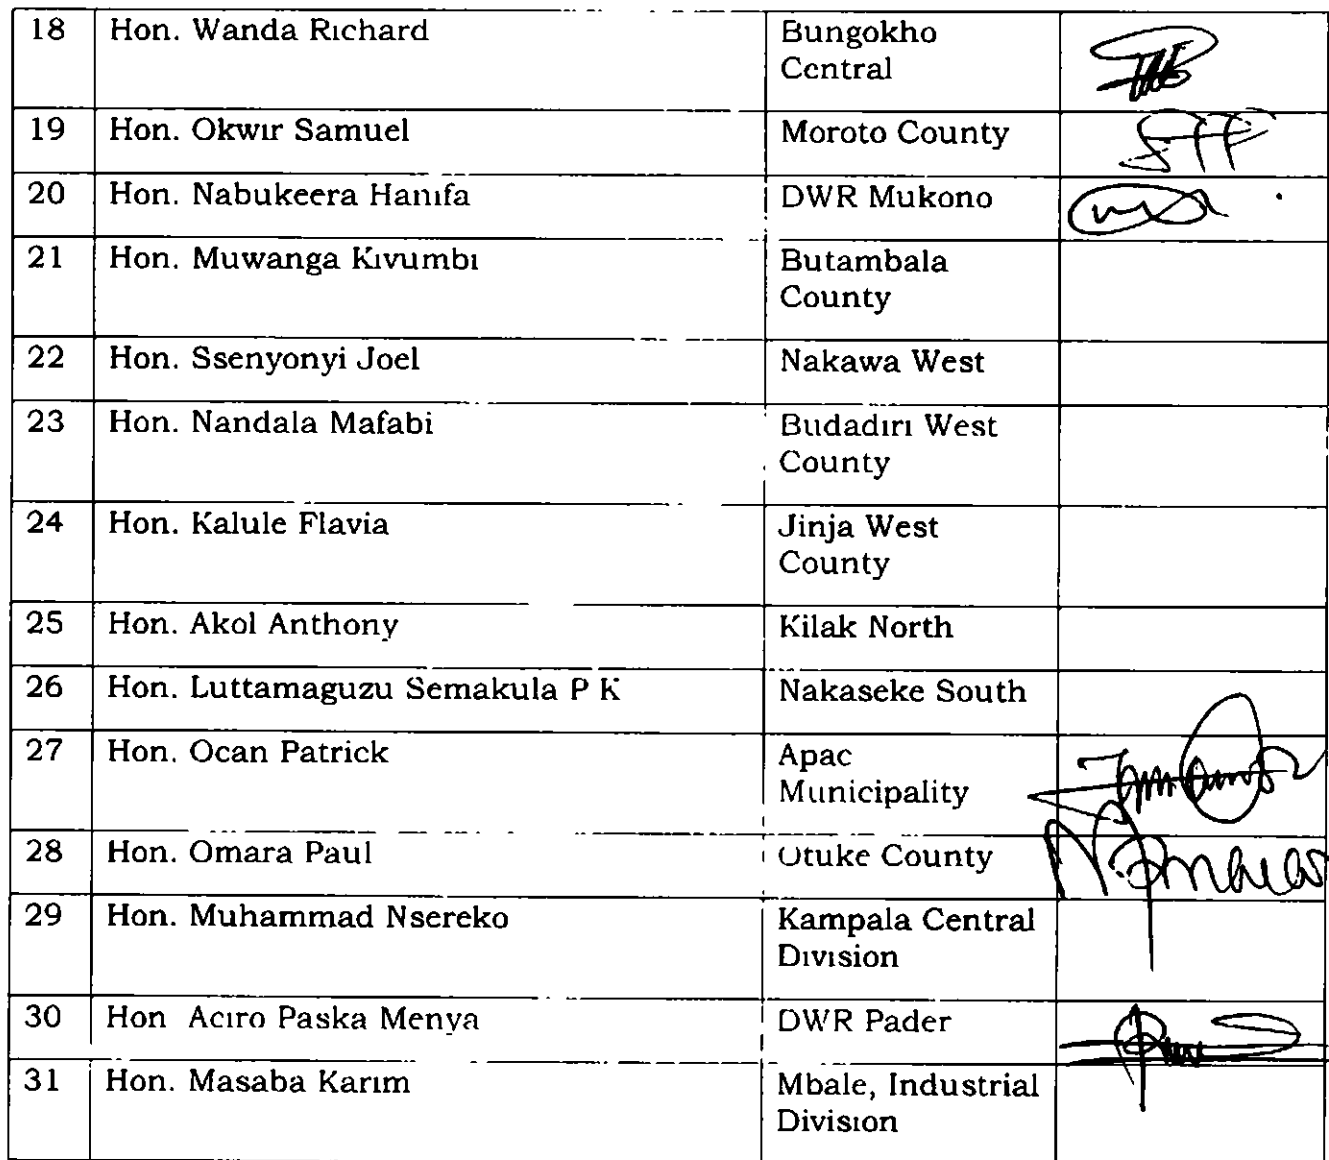 18 Hon. Wanda Richard Bungokho
Central
19 Hon. Okwir Samuel Moroto County
20 Hon. Nabukeera Hanifa DWR Mukono
21 Hon. Muwanga Kivumbi Butambala
County
22 Hon. Ssenyonyi Joel Nakawa West
23 Hon. Nandala Mafabi Budadiri West
County
24 Hon. Kalule Flavia Jinja West
County
25 Hon. Akol Anthony Kilak North
26 Hon. Luttamaguzu Semakula P K Nakaseke South
27 Hon. Ocan Patrick Apac
Municipality
28 Hon. Omara Paul Otuke County
29 Hon. Muhammad Nsereko Kampala Central
Division
30 Hon Aciro Paska Menya DWR Pader
31 Hon. Masaba Karim Mbale, Industrial
Division